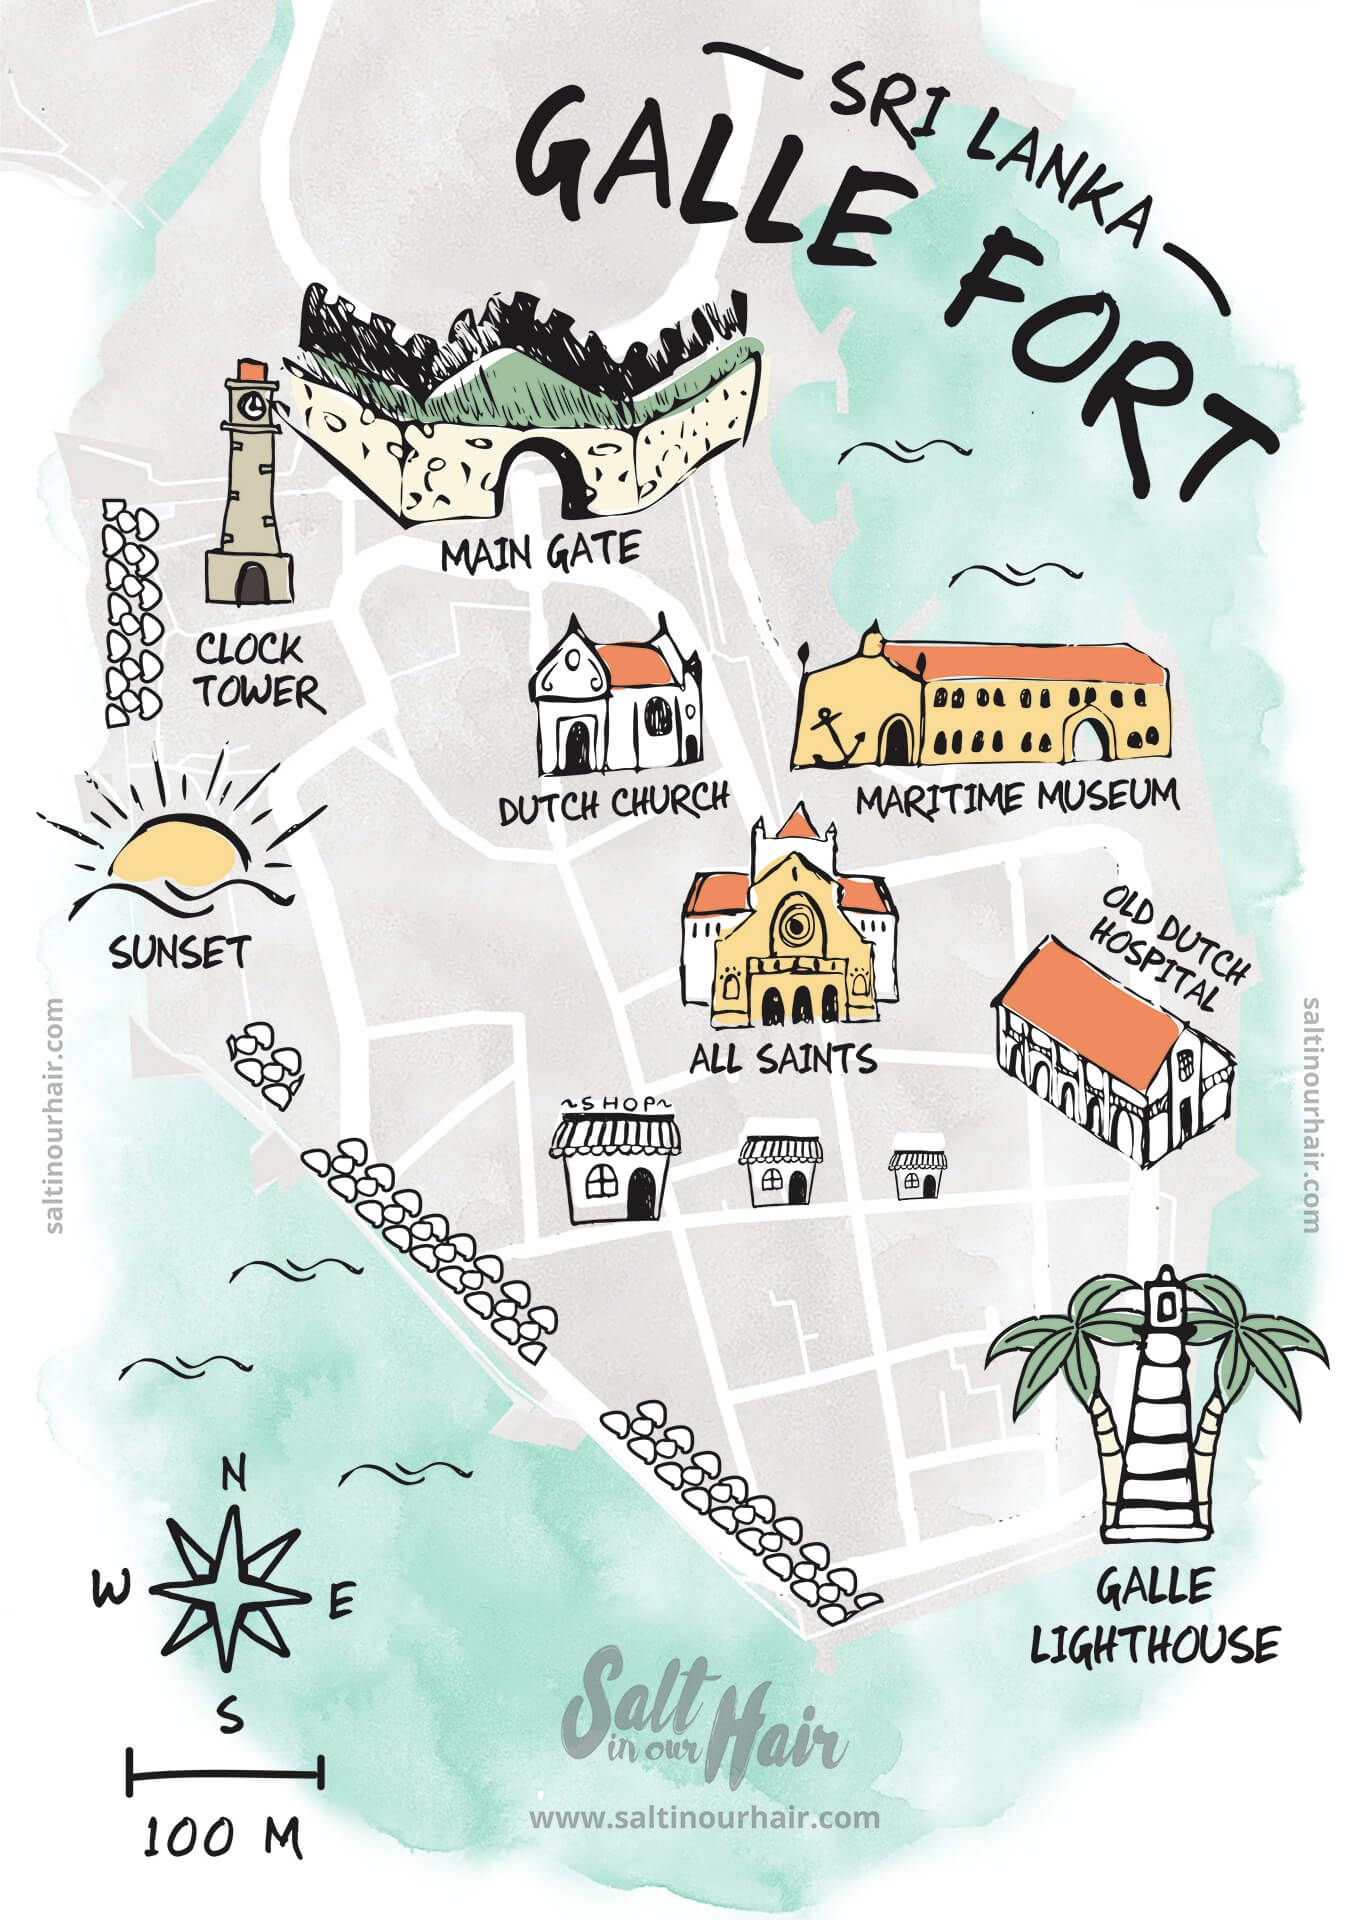 SRI LANKA
GALLE FORT
MAIN GATE
CLOCK
TOWER
DUTCH CHURCH
MARITIME MUSEUM
SUNSET
OLD DUTCH
HOSPITAL
ALL SAINTS
~SHOP~
saltinourhair.com
saltinourhair.com
GALLE
LIGHTHOUSE
N
W
E
S
100 M
Salt
in our Hair
www.saltinourhair.com